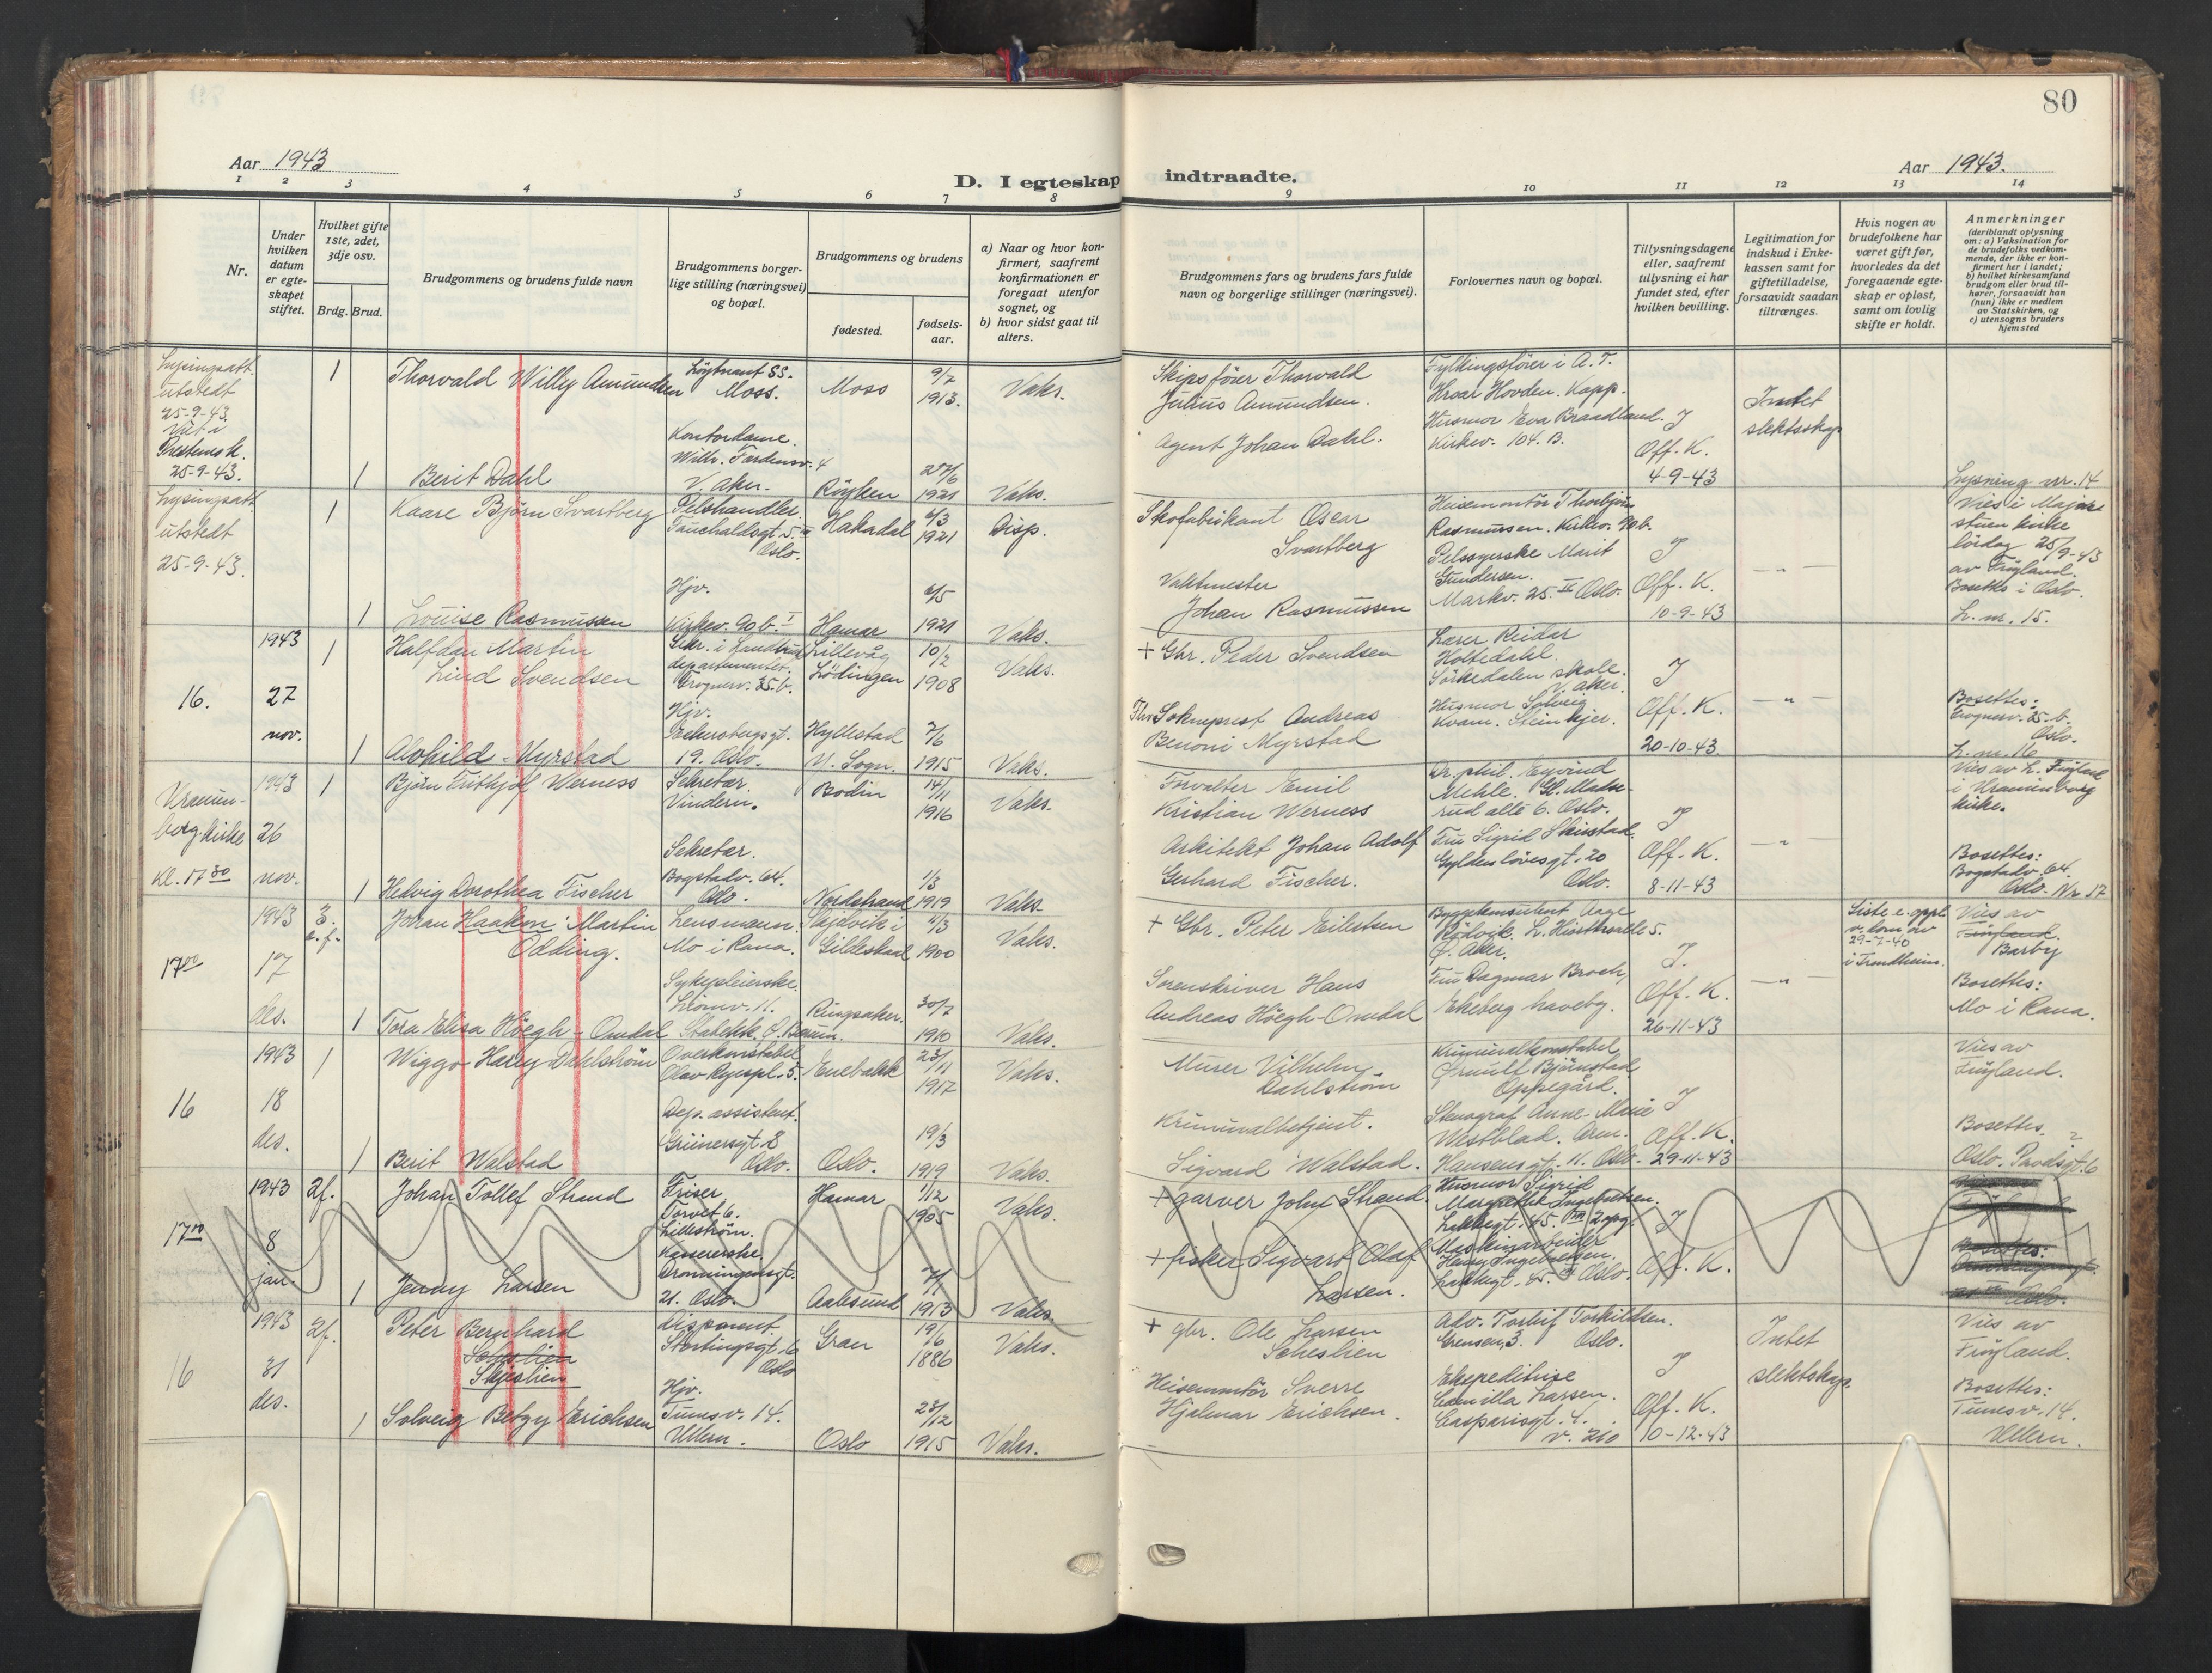 80
Aar 1943
Aar 1943.
D. I egteskap indtraadte.
1 2 3 4 5 6 7 8 9 10 11 12 13 14
Nr.
Under hvilken datum er egteskapet stiftet.
Hvilket gifte 1ste, 2det, 3dje osv.
Brdg. Brud.
Brudgommens og brudens fulde navn
Brudgommens borgerlige stilling (næringsvei) og bopæl.
Brudgommens og brudens
fødested.
fødselsaar.
a) Naar og hvor konfirmert, saafremt konfirmationen er foregaat utenfor sognet, og
b) hvor sidst gaat til alters.
Brudgommens fars og brudens fars fulde navn og borgerlige stillinger (næringsvei).
Forlovernes navn og bopæl.
Tillysningsdagene eller, saafremt tillysning ei har fundet sted, efter hvilken bevilling.
Legitimation for indskud i Enkekassen samt for giftetilladelse, forsaavidt saadan tiltrænges.
Hvis nogen av brudefolkene har været gift før, hvorledes da det foregaaende egteskap er opløst, samt om lovlig skifte er holdt.
Anmerkninger
(deriblandt oplysning om: a) Vaksination for de brudefolks vedkommende, der ikke er konfirmert her i landet;
b) hvilket kirkesamfund brudgom eller brud tilhører, forsaavidt han (hun) ikke er medlem av Statskirken, og
c) utensogns bruders hjemsted
Lysingsatt.
utstedt
25-9-43.
Viet i
25-9-43.
1
Thorvald Willy Amundsen
Løytnant SS.
Moss.
Moss
9/7
1913.
Vaks.
Skipsfører Thorvald
Julius Amundsen.
Fylkingsfører i A.T.
Hroar Hovden. Kapp.
Intet
slektskap
1
Berit Dahl
Kontordame.
V. Aker.
Røyken
27/6
1921
Vaks.
Agent Johan Dahl.
Husmor Eva Braadland.
Kirkev. 104. B.
J
Off. K.
4-9-43
Lysning nr. 14
Lysingsatt.
utstedt
25-9-43.
1
Kaare Bjørn Svartberg
Pelshandler.
Fauchaldsgt. 5. III
Oslo.
Hakadal
6/3
1921
Disp.
Skofabrikant Oscar
Svartberg
Heisemontør Thorbjørn
Rasmussen. Kirkev. 90b.
Vies i Majorstuen kirke
lørdag 25/9-43
av Frøyland.
Bosettes i Oslo.
L. nr. 15.
1
Louise Rasmussen
Hjv.
Kirkev. 90 b. I
Hamar
1921
Vaks.
Vaktmester
Johan Rasmussen
Pelssyerske Marit
Gundersen.
Markv. 25. IV Oslo.
J
Off. K.
10-9-43
— " —
16.
1943
27
nov.
1
Halfdan Martin
Lind Svendsen
Sekr. i Landbruksdepartementet.
Frognerv. 35.b.
Lillevåg
Lødingen
10/2
1908
Vaks.
+ Gbr. Peder Svendsen
Lærer Reidar
Holtedahl.
Sørkedalen skole.
V. Aker.
J
Off. K.
20-10-43.
— " —
Bosettes:
Frognerv. 35.b.
Oslo.
L. nr. 16
1
Alvhild Myrstad
Hjv.
19. Oslo.
Hyllestad
Y. Sogn.
7/6
1915
Vaks.
Sokneprest Andreas
Benoni Myrstad
Husmor Solveig
Kvam. Steinkjer.
Uranienborg kirke
Kl. 17 30
1943
26
nov.
1
Bjørn Frithjof Werness
Sekretær.
Vindern.
Bodin
14/11
1916
Vaks.
Forvalter Emil
Kristian Werness
Dr. phil. Eyvind
Mehle. Gl. Madserud allé 6. Oslo.
Vies av L. Frøyland
i Uranienborg
kirke.
1
Hedvig Dorothea Fischer
Sekretær.
Bogstadv. 64.
Oslo.
Nordstrand
1/3
1919
Vaks.
Arkitekt Johan Adolf
Gerhard Fischer.
Fru Sigrid Skirstad.
Gyldenløvesgt. 20
Oslo.
J
Off. K.
8-11-43
— " —
Bosettes:
Bogstadv. 64.
Oslo. Nr. 17
17 00
1943
17
des.
2.
e. f.
Johan Haakon Martin
Odding.
Lensmann.
Mo i Rana.
Gildeskål
4/3
1900
Vaks.
+ Gbr. Peter Eilertsen
Byggekonsulent Aage
Rødvik.
Ø. Aker.
Siste e. oppl.
v. dom av
29-7-40
i Trondheim.
Vies av
Frøyland.
Barby
1
Tora Elisa Høegh-Omdal
Sykepleierske.
Stabekk. Ø. Bærum.
Ringsaker.
30/7
1910
Vaks.
Sorenskriver Hans
Andreas Høegh-Omdal
Fru Dagmar Broch,
Ekeberg haveby.
J.
Off. K.
26-11-43
— " —
Bosettes:
Mo i Rana.
16
1943
18
des.
1
Wiggo Harry Dahlstrøm
Overkonstabel
Olav Ryespl. 5.
Enebakk
23/11
1917
Vaks.
Murer Vilhelm
Dahlstrøm
Kriminalkonstabel
Ørnulf Bjørnstad
Oppegård.
Vies av
Frøyland.
1
Berit Walstad
Dep. assistent.
Grünersgt. 8
Oslo.
Oslo.
19/3
1919
Vaks.
Kriminalbetjent.
Sigvard Walstad.
Stenograf Anne-Marie
Westblad. Arm.
Hansensgt. 11. Oslo.
J
Off. K.
29-11-43
Bosettes
17 00
1943
8
jan.
2f.
Johan Tollef Strand
Frisør
Torvet 6.
Lillestrøm.
Hamar
1/12
1905
Vaks.
+ garver Johs Strand
Husmor Sigrid
Margrethe Ingebretsen.
Lakkegt. 45. 2 opg.
1
Jenny Larsen
Kassererske.
Dronningensgt.
21. Oslo.
Aalesund
7/1
1913
Vaks.
+ fisker Sigvart Olaf
Larsen.
Maskinarbeider
Harry Ingebretsen.
Lakkegt. 45. Oslo.
J
Off. K.
16
1943
31
des.
2f.
Peter Bernhard
Scheslien
Skjeslien
Disponent.
Stortingsgt. 6
Oslo
Gran
19/6
1886
Vaks.
+ gbr. Ole Larsen
Scheslien
Adv. Torleif Torkildsen.
Grensen 3. Oslo.
Intet
slektskap
Vies av
Frøyland.
1
Solveig Betzy Erichsen
Hjv.
Tunsv. 14.
Ullern.
Oslo
23/12
1915
Vaks.
Heisemontør Sverre
Hjalmar Erichsen.
Ekspeditrise
Camilla Larsen.
Casparisgt. 4.
v. 260
J
Off. K.
10-12-43
Bosettes:
Tunesv. 14.
Ullern.